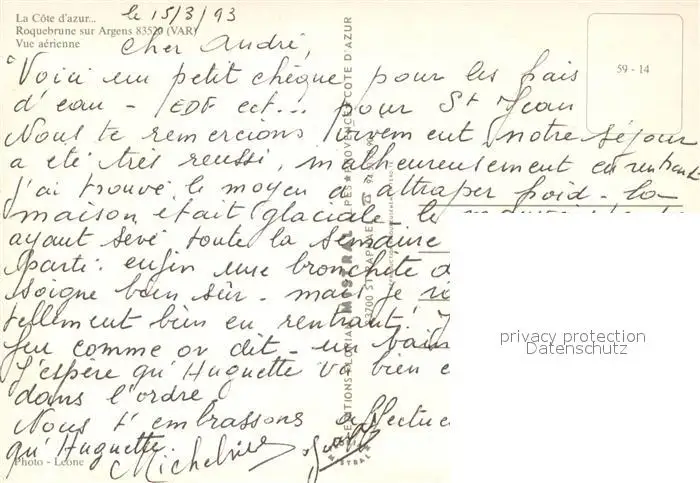 La Côte d'azur...
Roquebrune sur Argens 83520 (VAR)
Vue aérienne
59 - 14
le 15/3/93
Cher André,
Voici un petit chèque pour les frais
d'eau - EDF ect... pour St Jean
Nous te remercions vivement, notre séjour
a été très réussi, malheureusement en rentrant
j'ai trouvé le moyen d'attraper froid - la
maison était glaciale, le
ayant sévi toute la semaine
parti. enfin une bronchite
soigne bien sûr - mais je
tellement bien en rentrant!
feu comme on dit - un bain
J'espère qu'Huguette va bien
dans l'ordre.
Nous t'embrassons affectue
qu'Huguette.
Micheline
Photo - Léone
EDITIONS FLORIA MISTRAL ALPES★PROVENCE★COTE D'AZUR
83700 ST RAPHAEL
MISTRAL
privacy protection
Datenschutz